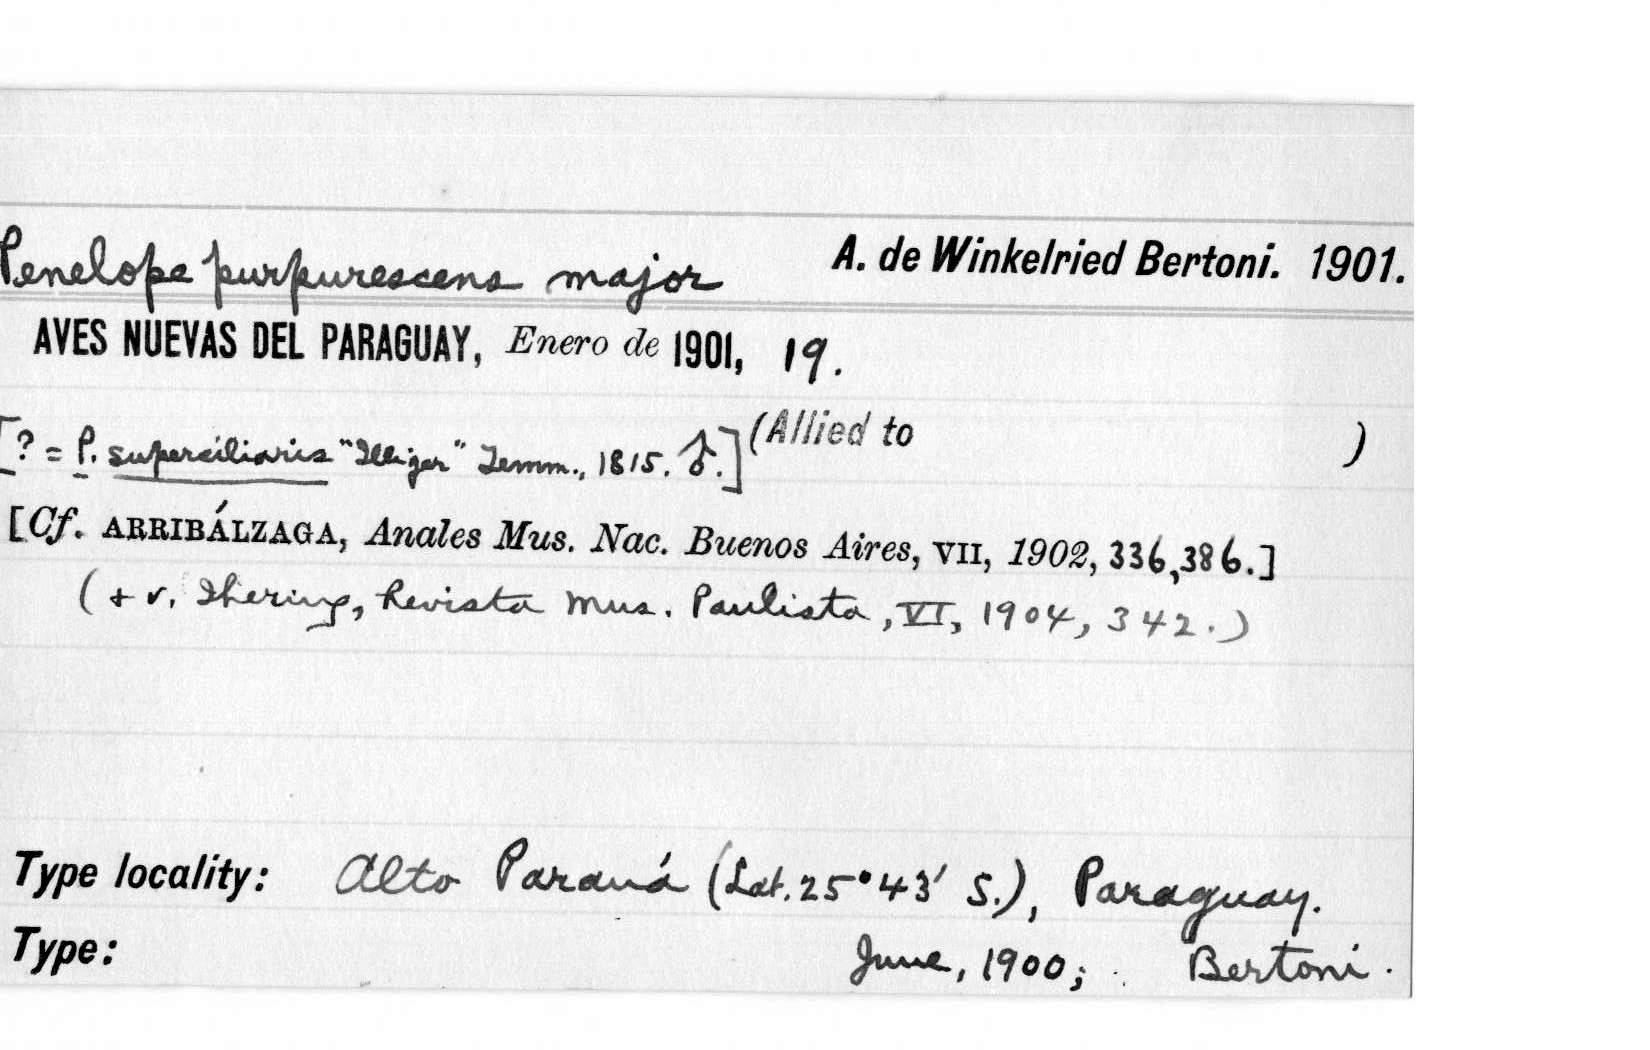 Penelope purpurescens major A. de Winkelried Bertoni. 1901.
AVES NUEVAS DEL PARAGUAY, Enero de 1901, 19.
[? = P. superciliaris "Illiger" Temm., 1815. ♂.] (Allied to )
[Cf. ARRIBÁLZAGA, Anales Mus. Nac. Buenos Aires, VII, 1902, 336,386.]
(+ v. Ihering, Revista Mus. Paulista, VI, 1904, 342.)
Type locality: Alto Paraná (Lat. 25°43' S.), Paraguay.
Type: June, 1900; Bertoni.